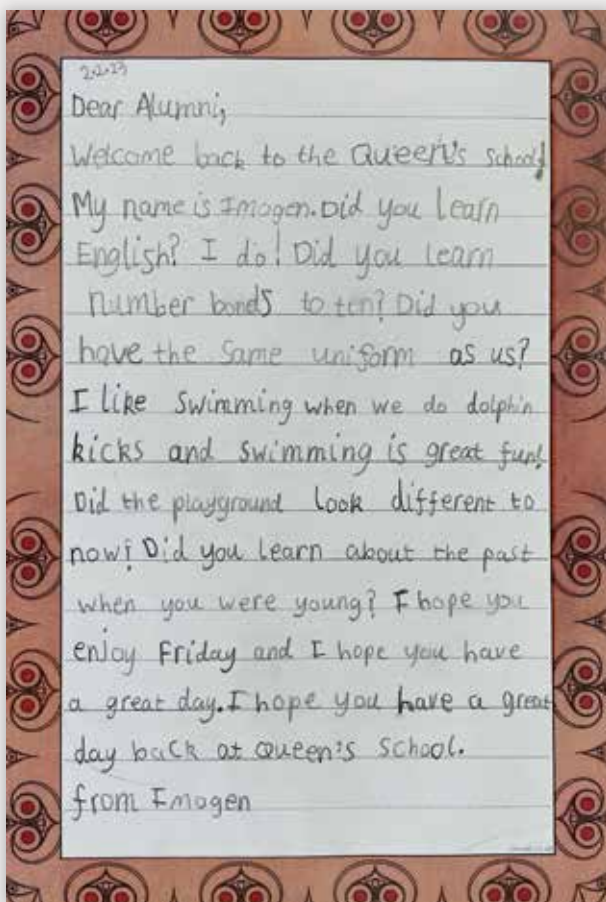 2.2.23
Dear Alumni,
Welcome back to the Queen's School!
My name is Imogen. Did you learn
English? I do! Did you learn
number bonds to ten? Did you
have the same uniform as us?
I like swimming when we do dolphin
kicks and swimming is great fun!
Did the playground look different to
now? Did you learn about the past
when you were young? I hope you
enjoy Friday and I hope you have
a great day. I hope you have a great
day back at Queen's School.
from Imogen